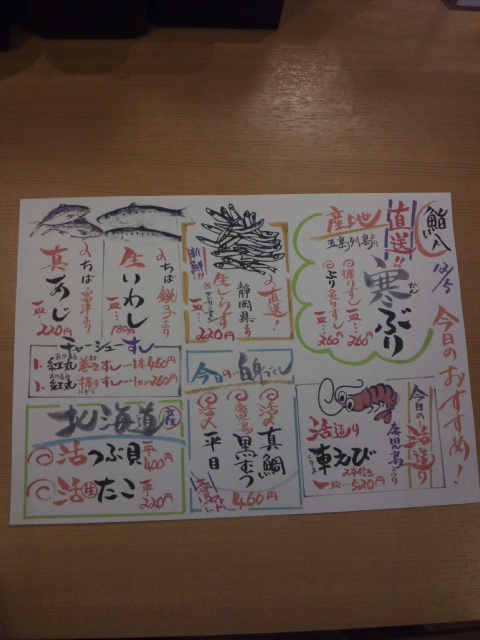 鮨八
12/5
今日のおすすめ!
産地直送!!
五島列島より
寒ぶり
握りずし
一皿…260円
ぶり炙りすし
一皿…260円
直送!
静岡県より
新鮮!!
生しらす
一皿…220円
ちば銚子より
生いわし
一皿…180円
ちば
真あじ
一皿…220円
チャーシューすし
1.紅丸巻きすし一本460円
1.紅丸握りすし一皿260円
北海道産
活つぶ貝
一皿400円
活たこ
一皿220円
今日の白身づくし
活〆真鯛
鹿児島黒むつ
活〆平目
460円
今日の活造り
鹿児島より
活造り
車えび
一皿…520円